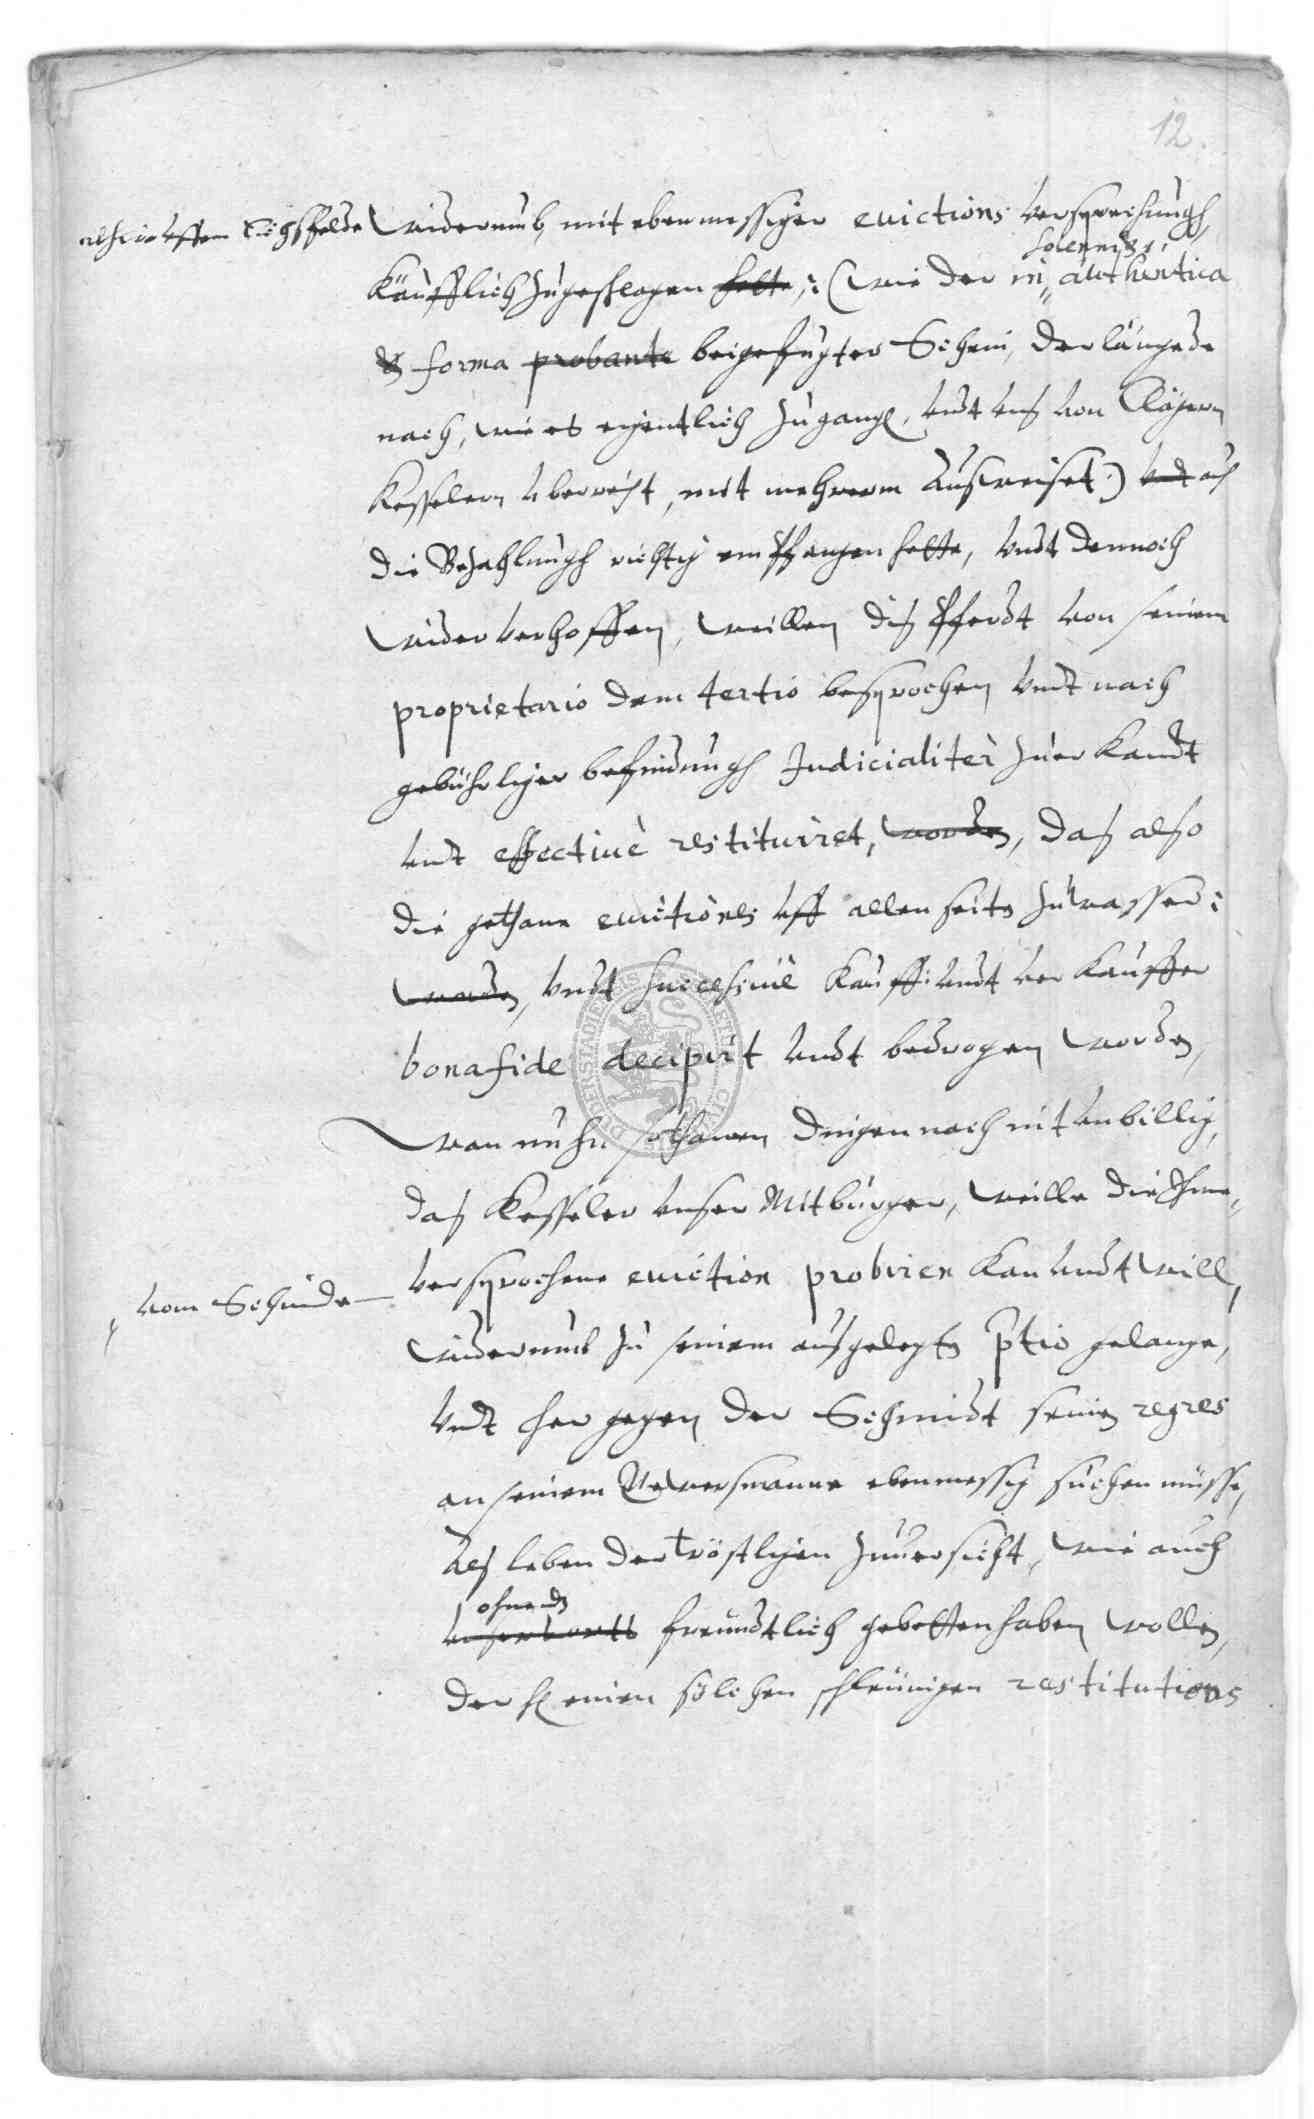 12.
alhie uffem Eichsfelde widerumb, mit ebenmessiger evictions versprechungh,
solennis:
käufflich zugeschlagen hette, :(wie der in authentica
& forma probante beigefugter Schein, der länge
nach, wie es eigentlich zugangen, undt uns von Clägern
Kesselern uberreicht, mit mehrerm außweiset:) undt auch
die Bezahlungh richtig empfangen hette, undt dennoch
wider verhoffen, weillen diß Pferdt von seinem
proprietario dem tertio besprochen undt nach
gebührlicher befindungh Judicialiter zuerkandt
undt effectivè restituiret, worden, daß also
die gethane evictiones uff allen seiten zu wasser
worden, undt successivè Kauff: undt verkauffer
bona fide decipirt undt bedrogen worden,
wan nuhn sothanen dingen nach nit unbillig,
daß Kesseler unser Mitbürger, weille die Ihme
versprochene eviction probiren kan undt will,
vom Schmide
widerumb zu seinem außgelegten p̄tio gelange,
undt hergegen der Schmidt seinen regres
an seinem Gewersmanne ebenmessig suchen müsse,
Alß leben der tröstlichen zuversicht, wie auch
freundtlich gebetten haben wollen,
der H. einen solchen schleunigen restitutions